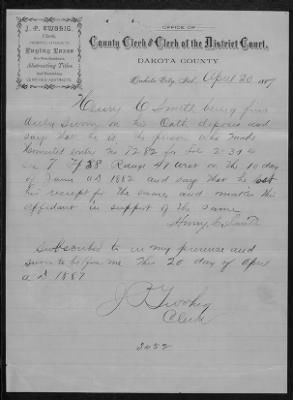 J. P. TWOHIG,
Clerk,
Buying Lands
Abstracting Titles
OFFICE OF
County Clerk & Clerk of the District Court,
DAKOTA COUNTY
Dakota City, Neb., April 20 1887
Henry C Smith being first
duly sworn on his Oath deposes and
say that he is the person who made
Homestead entry No 7282 for Lots 2-3 &
Sec 7 Tp 28 Range 41 West on the 10 day
of June AD 1882 and say that he lost
his receipt for the same and makes this
affidavit in support of the same
Henry C. Smith
Subscribed to in my presence and
sworn to before me this 20 day of April
A D. 1887
J P Twohig
Clerk